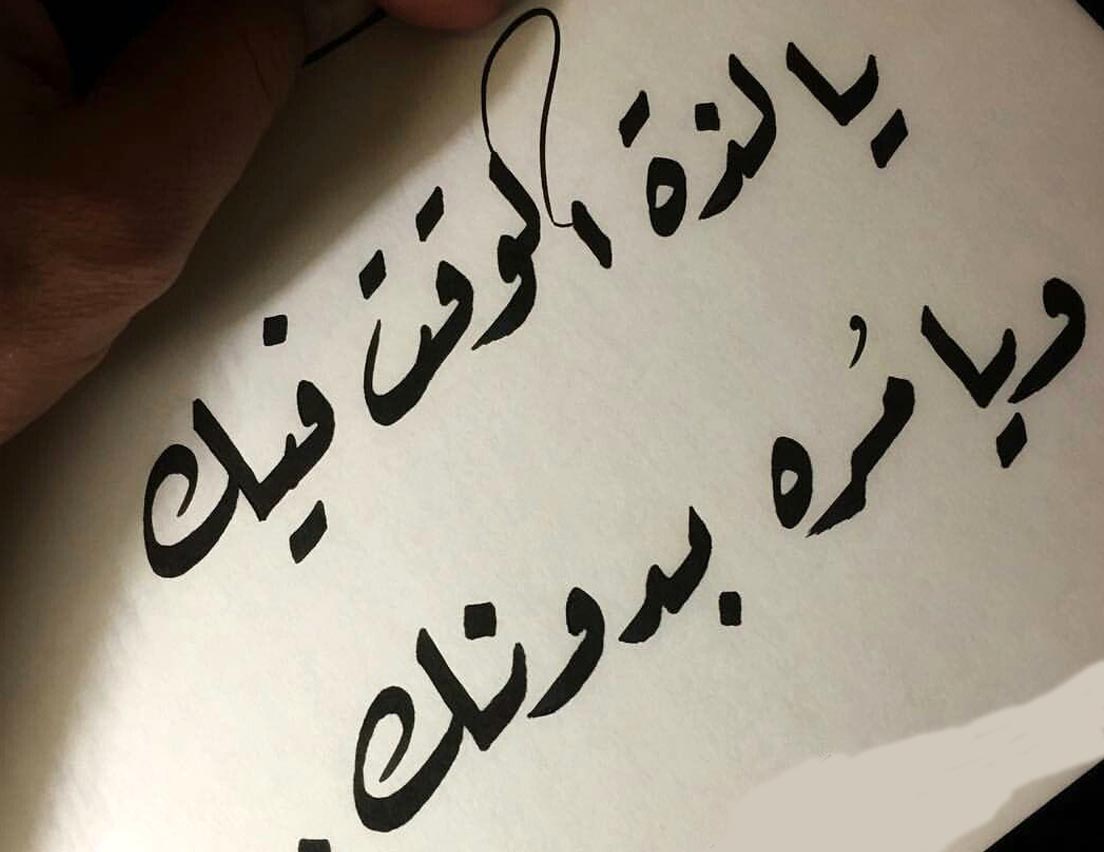 يا لذة الوقت فيك
ويا مُره بدونك